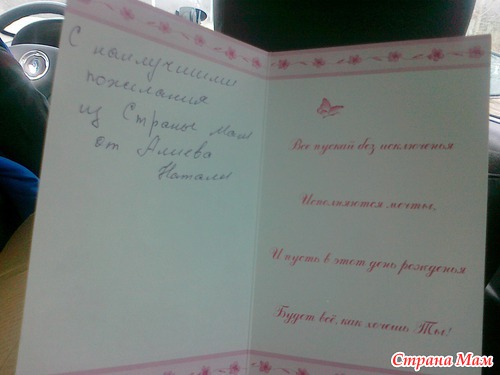 С наилучшими
пожелания
из Страны Мам
от Алиева
Натали
Все пускай без исключенья
Исполняются мечты,
И пусть в этот день рожденья
Будет всё, как хочешь Ты!
Страна Мам